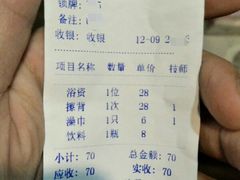 锁牌:
备注:
收银: 收银 12-09 2
项目名称 数量 单价 技师
浴资 1位 28
搓背 1次 28 1
澡巾 1只 6 1
饮料 1瓶 8
小计: 70 总金额: 70
应收: 70 实收: 70